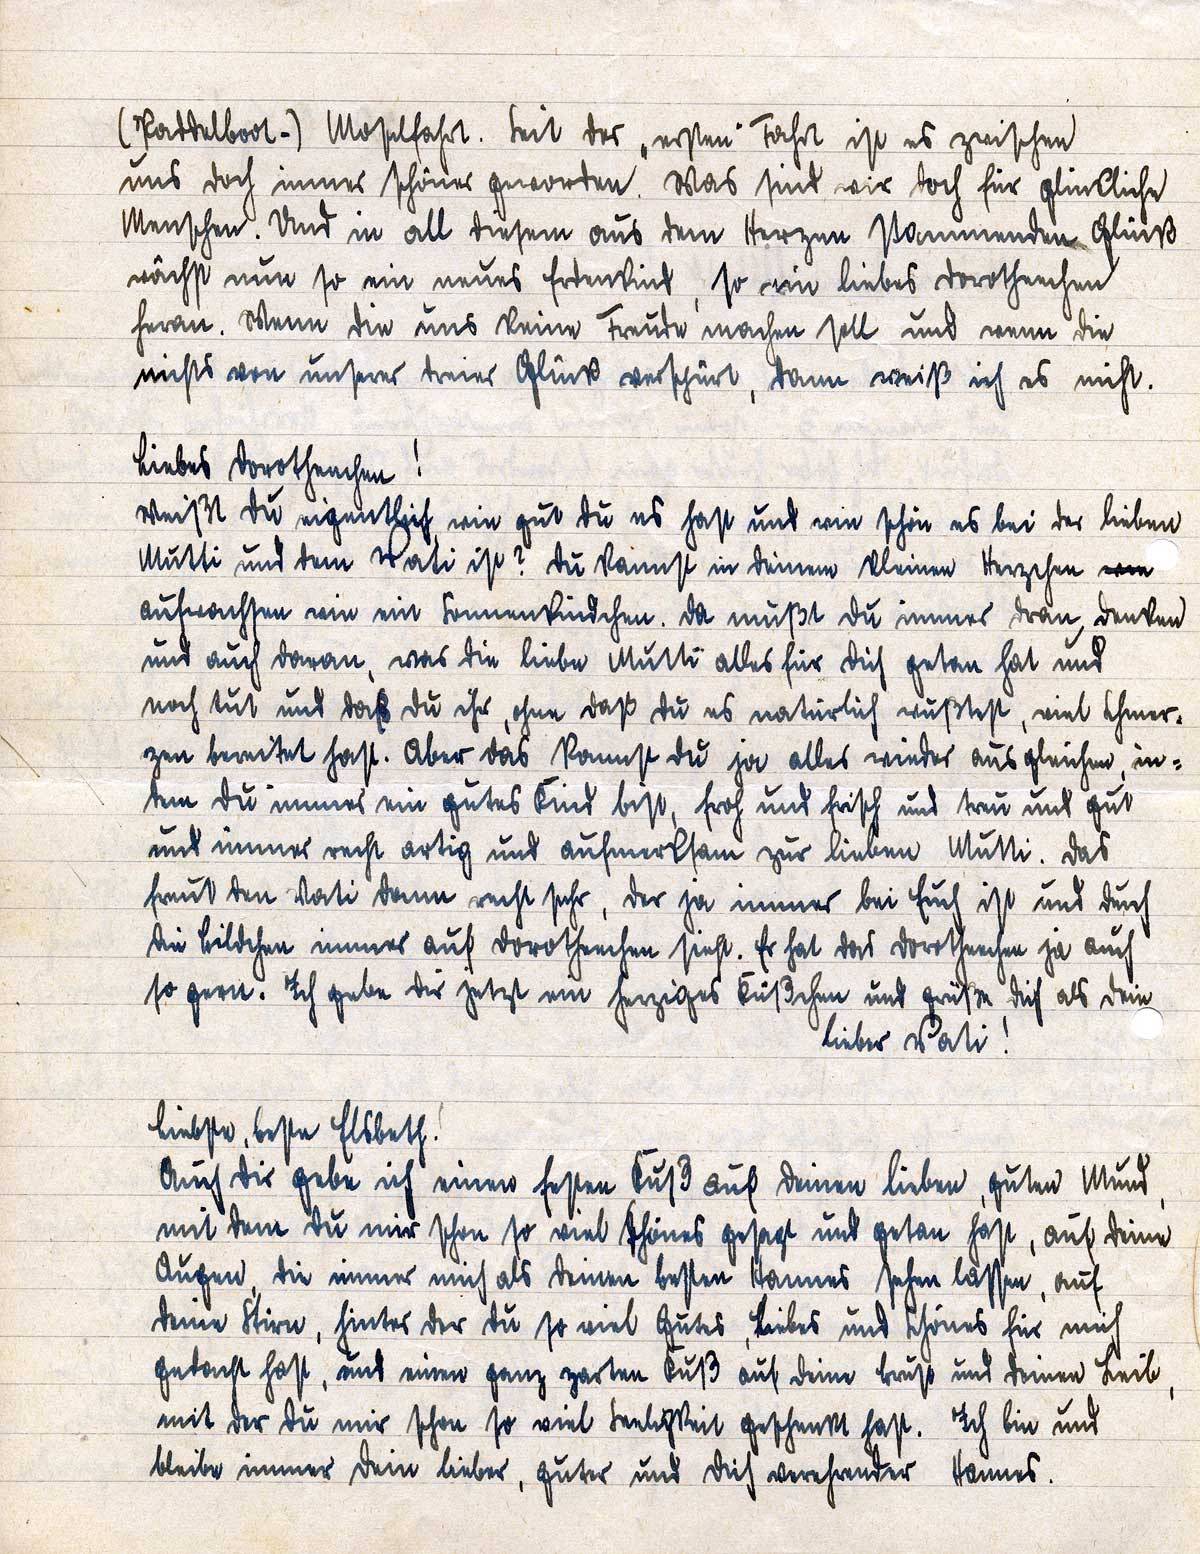 (Paddelboot-) Moselfahrt. Seit der „ersten" Fahrt ist es zwischen
uns doch immer schöner geworden. Was sind wir doch für glückliche
Menschen. Und in all diesem aus dem Herzen stammenden Glück
wächst nun so ein neues Erdenkind, so ein liebes Dorotheechen
heran. Wenn die uns keine Freude machen soll und wenn die
nichts von unserer dreier Glück verspürt, dann weiß ich es nicht.
Liebes Dorotheechen!
Weißt Du eigentlich, wie gut Du es hast und wie schön es bei der lieben
Mutti und dem Vati ist? Du kannst in Deinem kleinen Herzchen wie
aufwachsen wie ein Sonnenkindchen. Da mußt Du immer dran denken
und auch daran, was die liebe Mutti alles für Dich getan hat und
noch tut und daß Du ihr, ohne daß Du es natürlich wußtest, viel Schmer-
zen bereitet hast. Aber das kannst Du ja alles wieder ausgleichen, in-
dem Du immer ein gutes Kind bist, froh und frisch und treu und gut
und immer recht artig und aufmerksam zur lieben Mutti. Das
freut den Vati dann recht sehr, der ja immer bei Euch ist und durch
die Bildchen immer auf Dorotheechen sieht. Er hat das Dorotheechen ja auch
so gern. Ich gebe Dir jetzt ein herziges Küßchen und grüße Dich als Dein
lieber Vati!
Liebste, beste Elsbeth!
Auch Dir gebe ich einen festen Kuß auf Deinen lieben, guten Mund,
mit dem Du mir schon so viel Schönes gesagt und getan hast, auf Deine
Augen, die immer mich als Deinen besten Hannes sehen lassen, auf
Deine Stirn, hinter der Du so viel Gutes, Liebes und Schönes für mich
gedacht hast, und einen ganz zarten Kuß auf Deine Brust und Deinen Leib,
mit der Du mir schon so viel Seeligkeit geschenkt hast. Ich bin und
bleibe immer Dein lieber, guter und Dich verehrender Hannes.